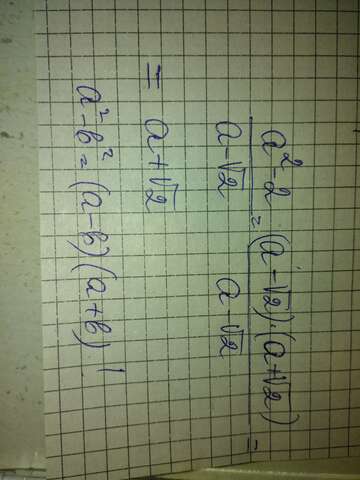 (a²-2)/(a-√2) = ((a-√2)·(a+√2))/(a-√2) =
= a+√2
a²-b²=(a-b)(a+b)!